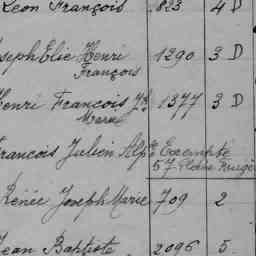 Léon François 823 4 D
Joseph Elie Henri 1290 3 D
François
Henri François Jh 1377 3 D
Marie
François Julien Alp. Exempté
57
Renée Joseph Marie 709 2
Jean Baptiste 2096 5